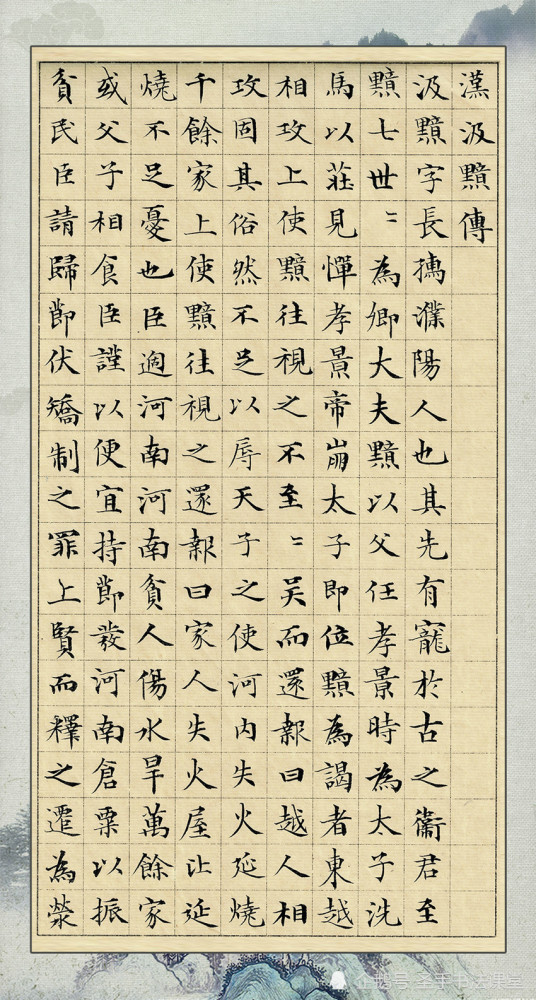 漢汲黯傳
汲黯字長孺濮陽人也其先有寵於古之衞君至
黯七世〻為卿大夫黯以父任孝景時為太子洗
馬以莊見憚孝景帝崩太子即位黯為謁者東越
相攻上使黯往視之不至〻吳而還報曰越人相
攻固其俗然不足以辱天子之使河內失火延燒
千餘家上使黯往視之還報曰家人失火屋比延
燒不足憂也臣過河南河南貧人傷水旱萬餘家
或父子相食臣謹以便宜持節發河南倉粟以振
貧民臣請歸節伏矯制之罪上賢而釋之遷為滎
企鹅号